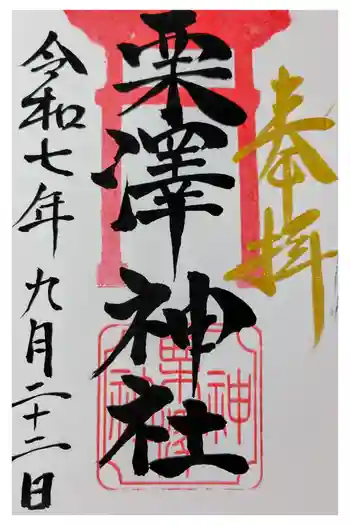 奉拝
栗澤神社
令和七年九月二十二日